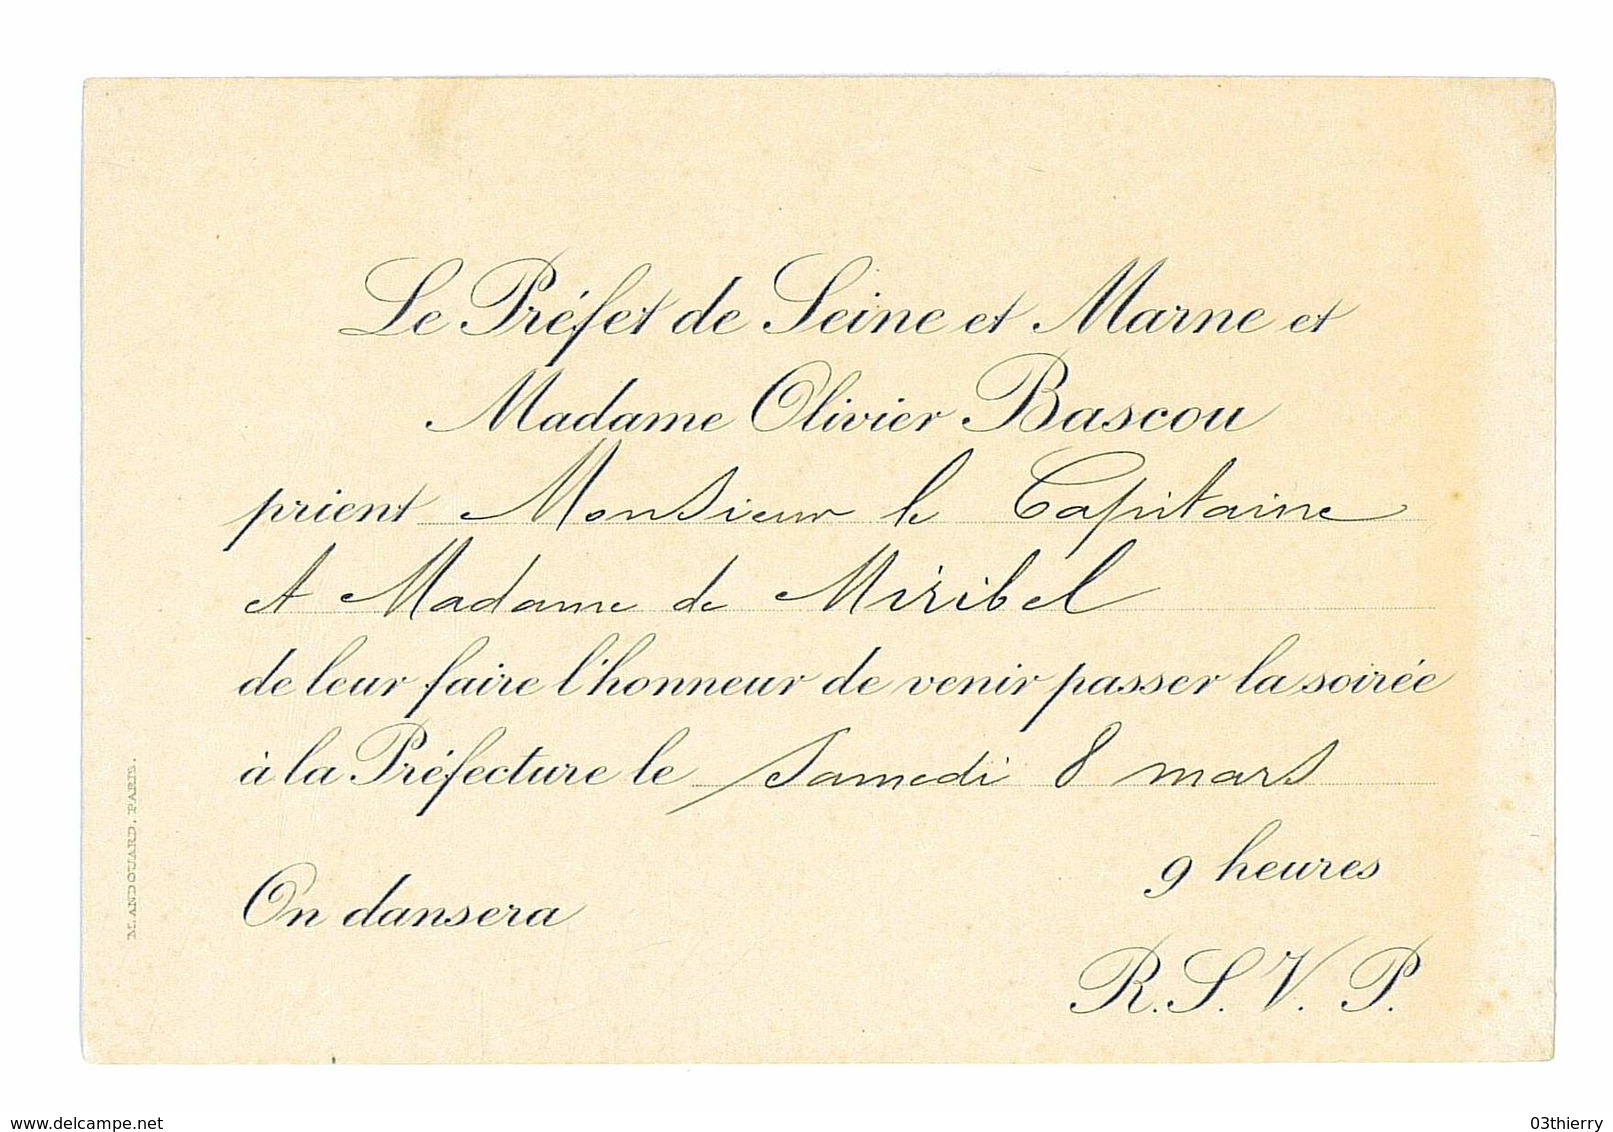 Le Préfet de Seine et Marne et
Madame Olivier Bascou
prient Monsieur le Capitaine
et Madame de Miribel
de leur faire l'honneur de venir passer la soirée
à la Préfecture le Samedi 8 mars
9 heures
On dansera
R.S.V.P.
M. ANDOUARD. PARIS.
www.delcampe.net
03thierry